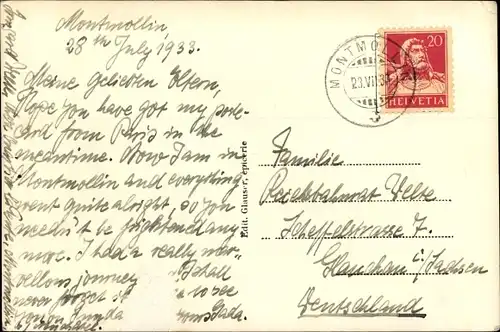 Montmollin
28th July 1933.
Meine geliebten Eltern,
Hope you have got my post-
card from Paris in the
meantime. Now I am in
Montmollin and everything
went quite alright, so you
needn't be frightened any
more. I had a really mar-
vellous journey I shall
never forget it
to see
Edit. Glauser, épicerie
MONTMOLLIN
28.VII.33
20
HELVETIA
Familie
Reichsbahnrat Welte
Scheffelstrasse 7.
Glauchau i/Sachsen
Deutschland